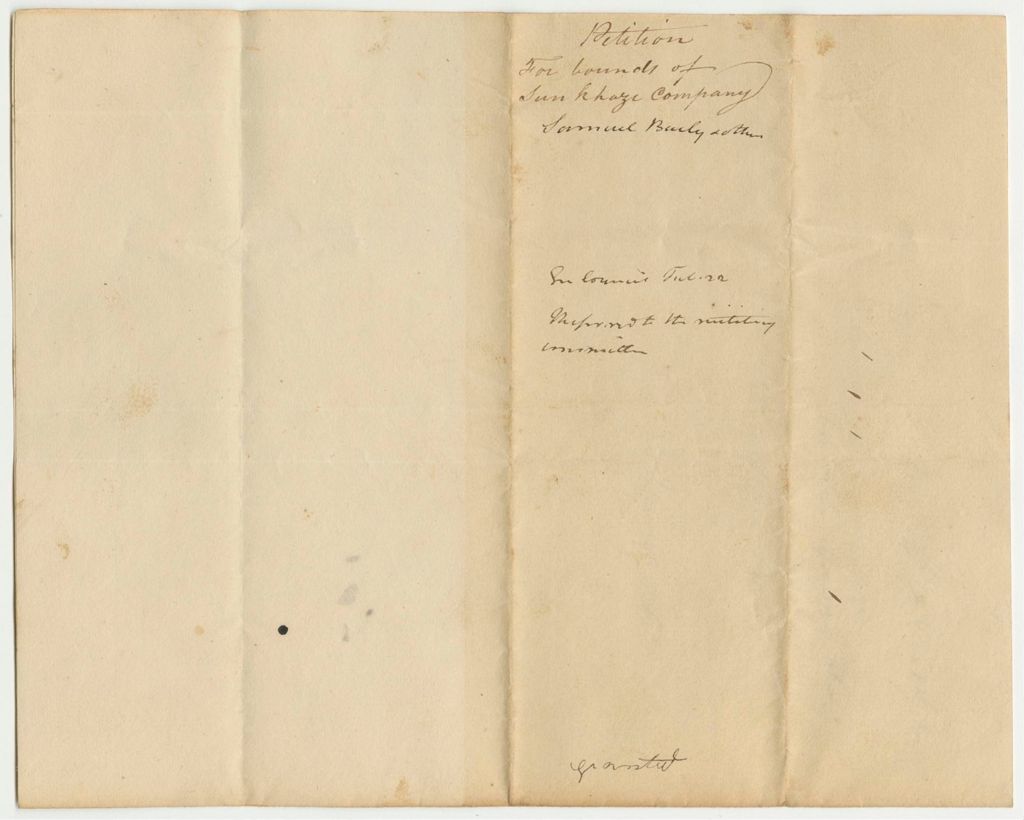 Petition
For bounds of
Sunkhaze Company
Samuel Burly & others
In Council Feb. 22
Referred to the military
committee
granted